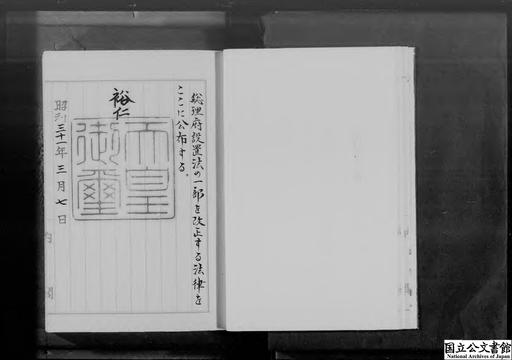 総理府設置法の一部を改正する法律を
ここに公布する。
裕仁
天皇
御璽
昭和三十一年三月七日
内閣
国立公文書館
National Archives of Japan